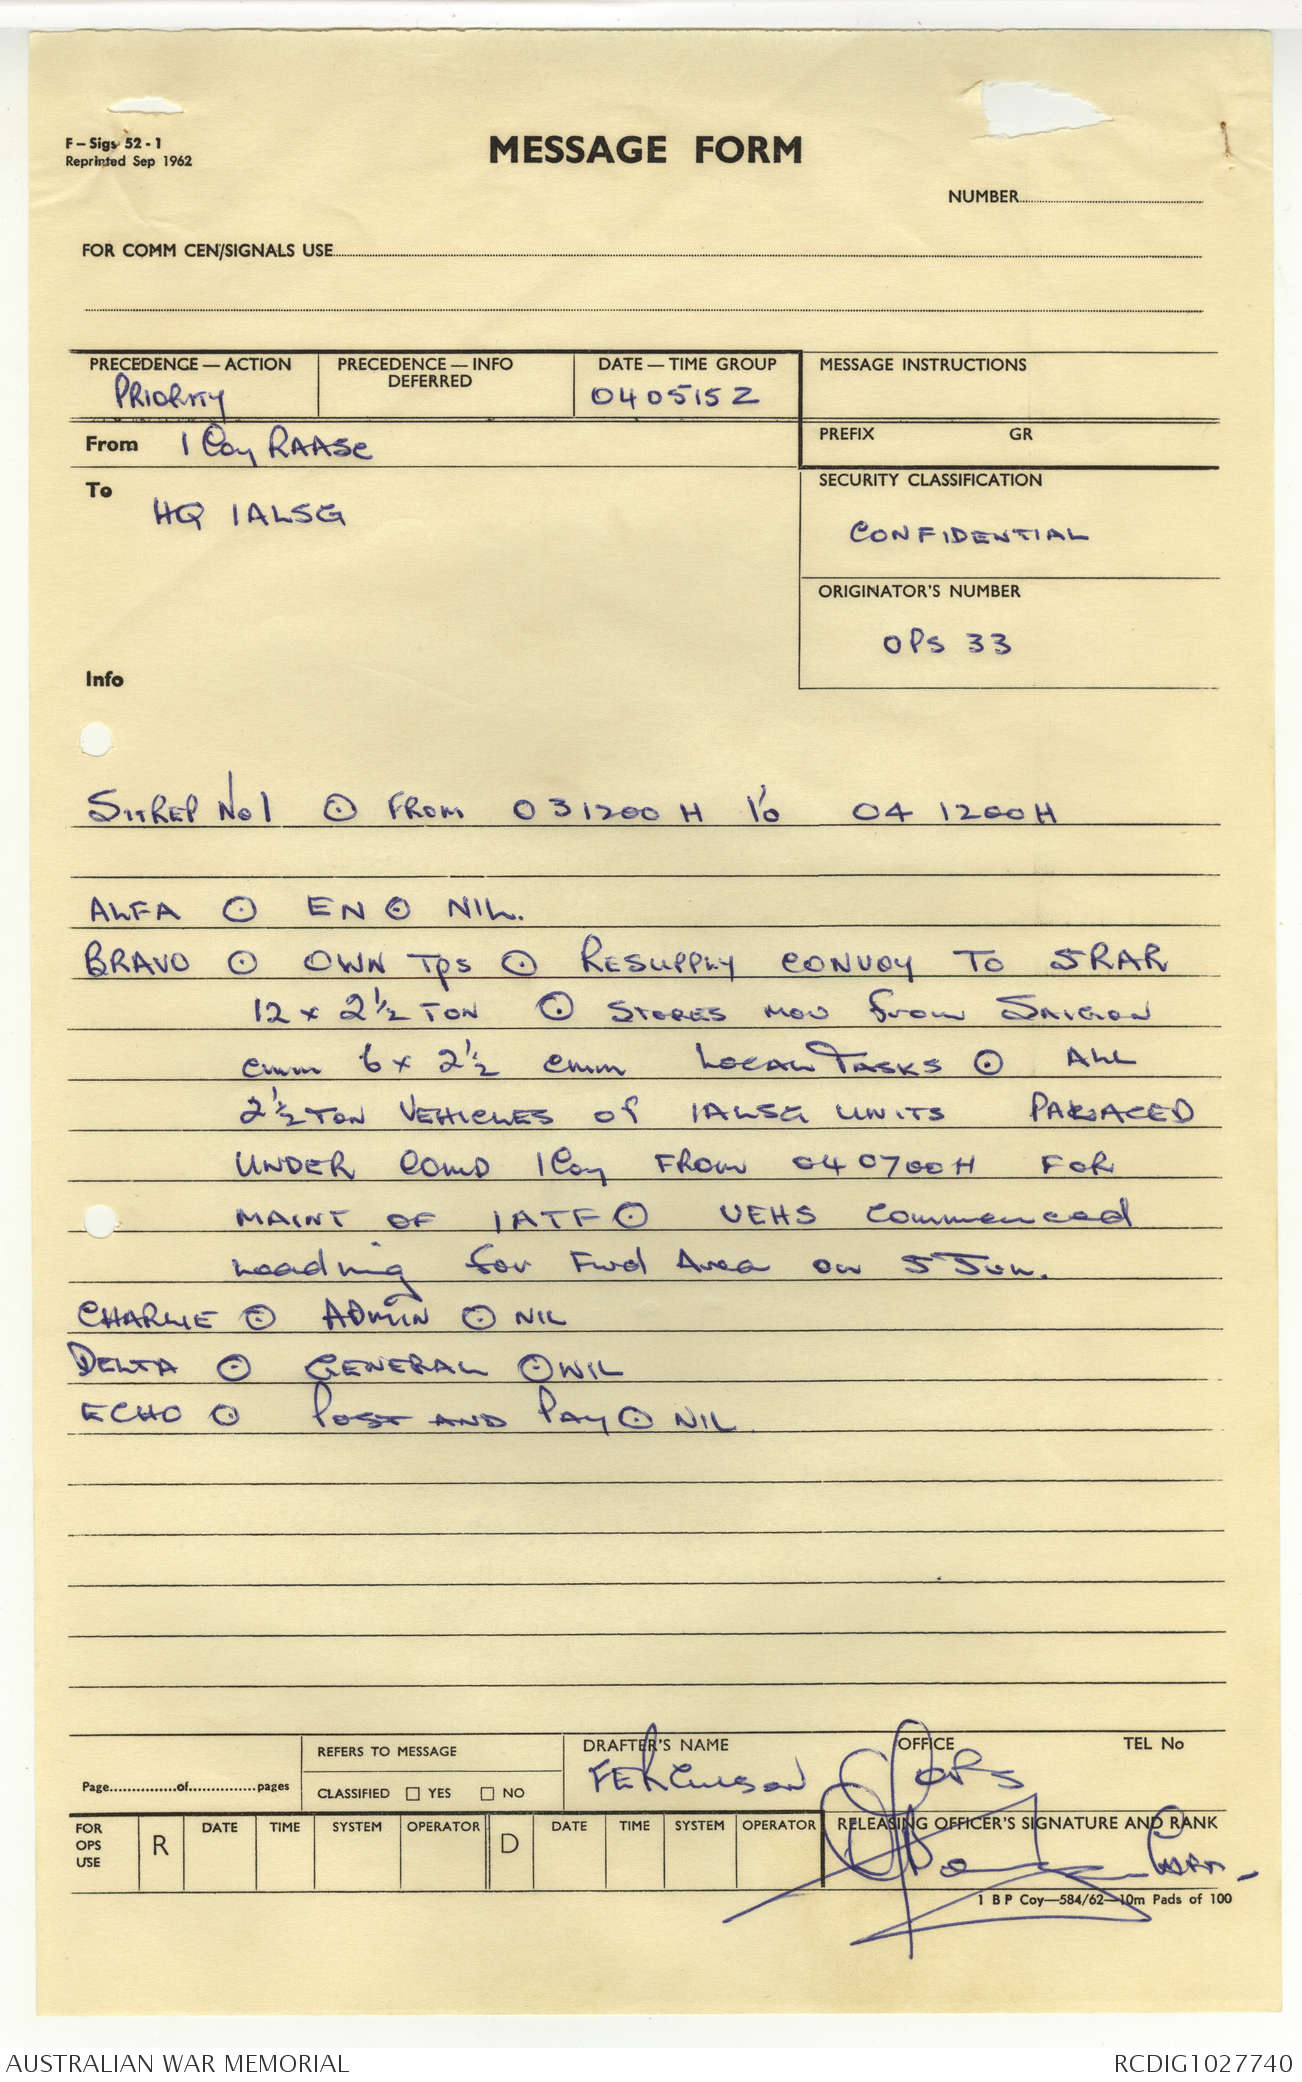 F – Sigs 52 - 1
Reprinted Sep 1962
MESSAGE FORM
NUMBER
FOR COMM CEN/SIGNALS USE
PRECEDENCE — ACTION
PRIORITY
PRECEDENCE — INFO
DEFERRED
DATE — TIME GROUP
040515Z
MESSAGE INSTRUCTIONS
From 1 Coy RAASC
PREFIX GR
To
HQ 1ALSG
SECURITY CLASSIFICATION
CONFIDENTIAL
ORIGINATOR'S NUMBER
OPS 33
Info
SITREP No 1 ⊙ FROM 031200H To 04 1200H
ALFA ⊙ EN ⊙ NIL.
BRAVO ⊙ OWN TPS ⊙ RESUPPLY CONVOY TO 5RAR
12 x 2½ TON ⊙ STORES MOV from SAIGON
cmm 6 x 2½ cmm LOCAL TASKS ⊙ ALL
2½ TON VEHICLES of 1ALSG UNITS
UNDER COMD 1 Coy FROM 040700H FOR
MAINT OF 1ATF ⊙ VEHS commenced
Loading for Fwd Area on 5 Jun.
CHARLIE ⊙ ADMIN ⊙ NIL
DELTA ⊙ GENERAL ⊙ NIL
ECHO ⊙ POST AND PAY ⊙ NIL.
Page of pages
REFERS TO MESSAGE
CLASSIFIED ☐ YES ☐ NO
DRAFTER'S NAME OFFICE TEL No
FERGUSON OPS
FOR
OPS
USE
R DATE TIME SYSTEM OPERATOR D DATE TIME SYSTEM OPERATOR
RELEASING OFFICER'S SIGNATURE AND RANK
CAPT.
1 B P Coy—584/62—10m Pads of 100
AUSTRALIAN WAR MEMORIAL RCDIG1027740